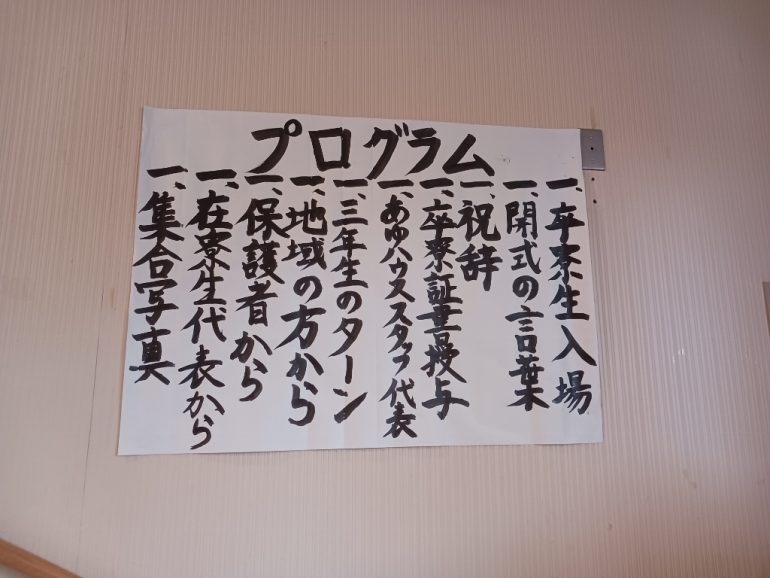 プログラム
一、卒寮生入場
一、開式の言葉
一、祝辞
一、卒寮証書授与
一、あゆハウススタッフ代表
一、三年生のターン
一、地域の方から
一、保護者から
一、在寮生代表から
一、集合写真